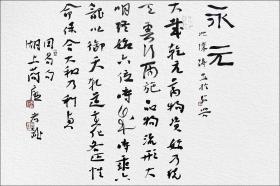 永元
大哉乾元萬物資始乃統
天雲行雨施品物流形大
明終始六位時成時乘六
龍以御天乾道變化各正性
命保合大和乃利貞
周易句
湖上